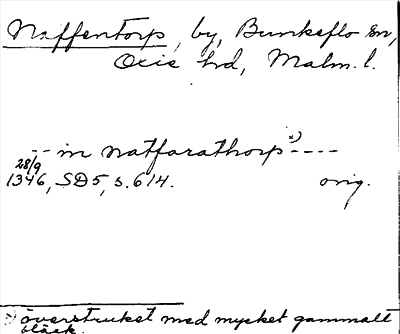 Naffentorp, by, Bunkeflo sn,
Oxie hd, Malm. l.
-- in natfarathorp x) ----
28/9
1346, SD 5, s. 614. orig.
x) överstruket med mycket gammalt
bläck.